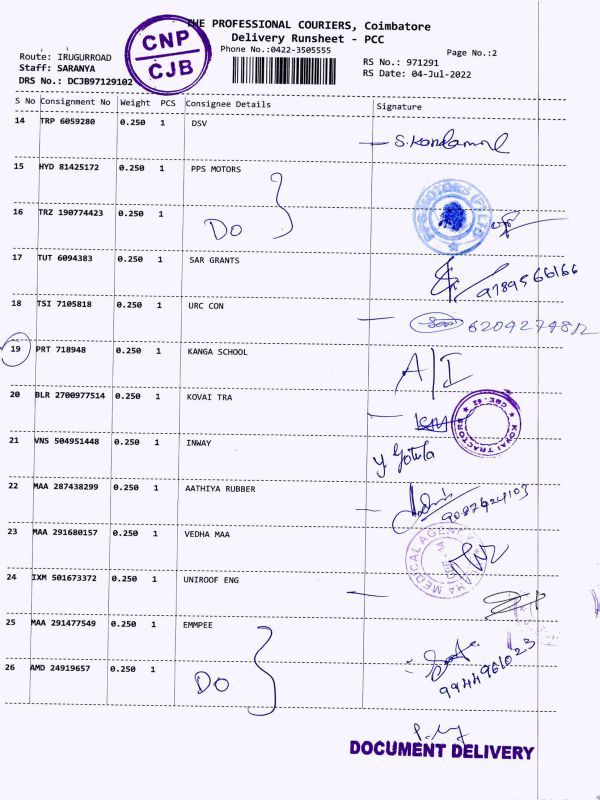 THE PROFESSIONAL COURIERS, Coimbatore
Delivery Runsheet - PCC
Phone No.:0422-3505555
Page No.:2
CNP
CJB
Route: IRUGURROAD
Staff: SARANYA
DRS No.: DCJB97129102
RS No.: 971291
RS Date: 04-Jul-2022
S No Consignment No Weight PCS Consignee Details Signature
14 TRP 6059280 0.250 1 DSV
S.Kandamol
15 HYD 81425172 0.250 1 PPS MOTORS
PPS MOTORS (P) LTD
16 TRZ 190774423 0.250 1 DO
17 TUT 6094383 0.250 1 SAR GRANTS
9789566166
18 TSI 7105818 0.250 1 URC CON
19 PRT 718948 0.250 1 KANGA SCHOOL
A/I
20 BLR 2700977514 0.250 1 KOVAI TRA
KOVAI TRACTORS ★ CBE-62 ★
21 VNS 504951448 0.250 1 INWAY
22 MAA 287438299 0.250 1 AATHIYA RUBBER
9087624103
23 MAA 291680157 0.250 1 VEDHA MAA
MEDICAL AGENCY
24 IXM 501673372 0.250 1 UNIROOF ENG
25 MAA 291477549 0.250 1 EMMPEE
26 AMD 24919657 0.250 1 DO
9944961023
DOCUMENT DELIVERY